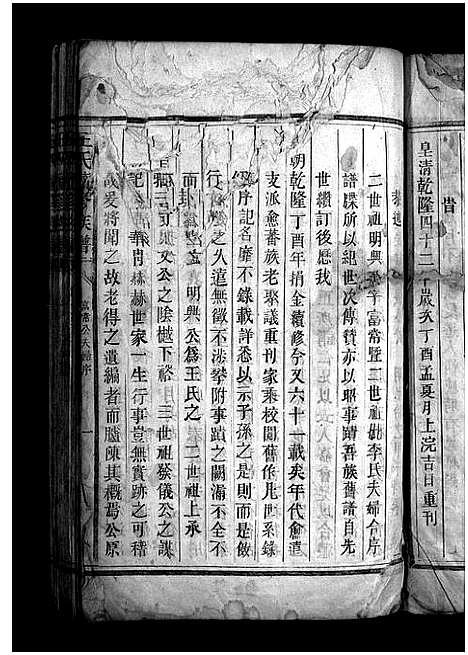 皇清乾隆四十二年歲次丁酉孟夏月上浣吉日重刊
二世祖明興
富常暨二世祖妣李氏夫婦合序
譜牒所以紀世次傳贊亦以昭事蹟吾族舊譜自先
世續訂後歷我
朝乾隆丁酉年捐金續修今又六十一載矣年代愈遠
支派愈蕃族老聚議重刊家乘校閱舊
世系錄
序記名靡不錄載詳悉以示子孫之是則而是倣
行
之人這無徵不涉攀附事蹟之闕漏不全不
而
明興公為王氏之二世祖上承
公之陰樾下啓
三世祖
儀公之謀
華冑赫赫世家一生行事豈無實跡之可稽
或愛將聞之故老得之遺編者而臚陳其概焉公原
王氏
族譜
序
一